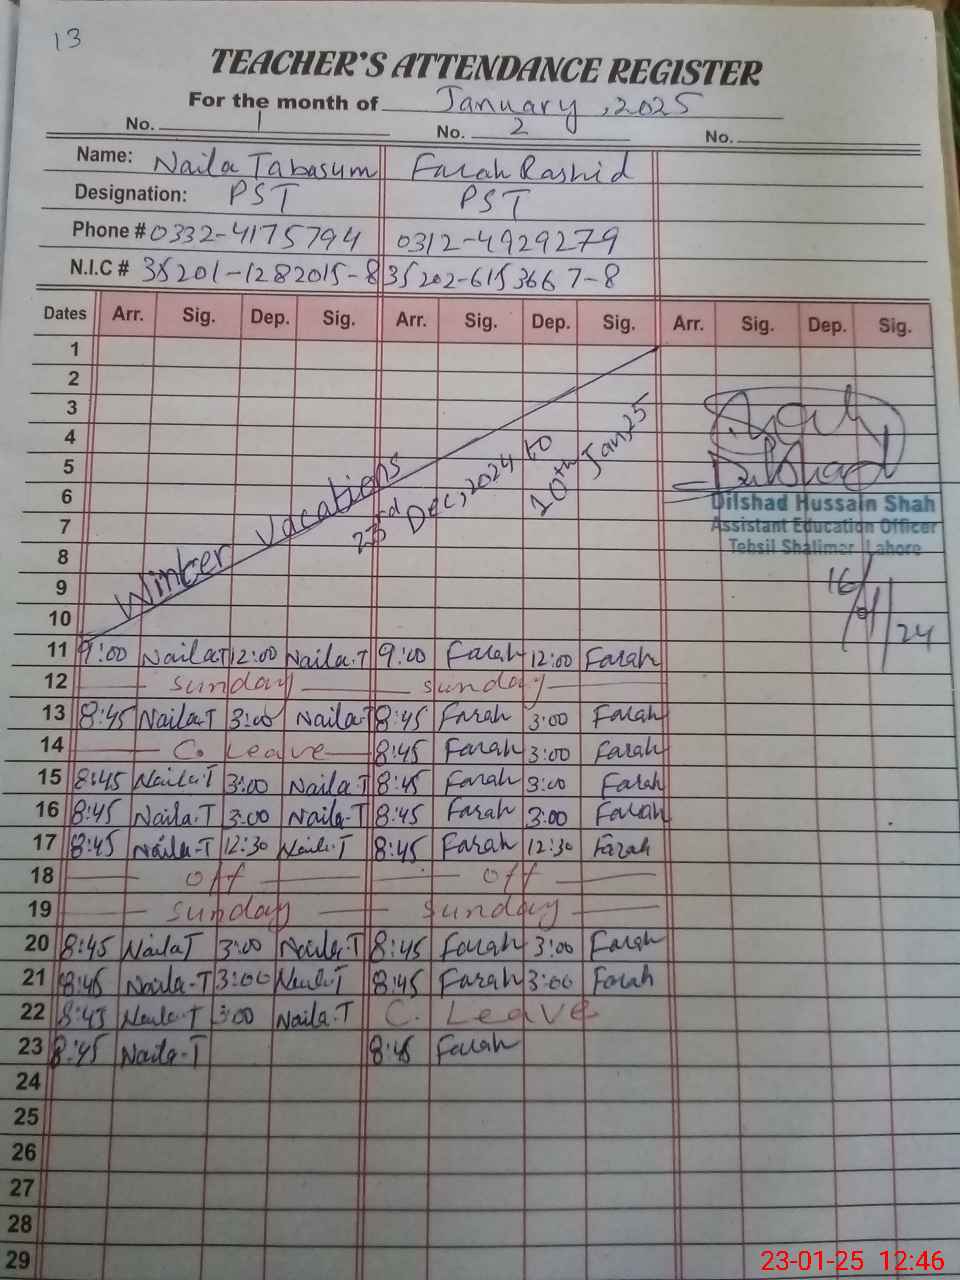 13
TEACHER'S ATTENDANCE REGISTER
For the month of January, 2025
No. 1 No. 2 No.
Name: Naila Tabasum Farah Rashid
Designation: PST PST
Phone # 0332-4175794 0312-4929279
N.I.C # 35201-1282015-8 35202-6153667-8
Dates Arr. Sig. Dep. Sig. Arr. Sig. Dep. Sig. Arr. Sig. Dep. Sig.
1
2
3
4
5
6
7
8
9
10
Winter vacations
23rd Dec, 2024 to
10th Jan, 25
Dilshad
Dilshad Hussain Shah
Assistant Education Officer
Tehsil Shalimar Lahore
16/01/24
11 9:00 Naila T 12:00 Naila.T 9:00 Farah 12:00 Farah
12 Sunday Sunday
13 8:45 Naila-T 3:00 Naila-T 8:45 Farah 3:00 Farah
14 C. Leave 8:45 Farah 3:00 Farah
15 8:45 Naila-T 3:00 Naila-T 8:45 Farah 3:00 Farah
16 8:45 Naila-T 3:00 Naila-T 8:45 Farah 3:00 Farah
17 8:45 Naila-T 12:30 Naila-T 8:45 Farah 12:30 Farah
18 off off
19 Sunday Sunday
20 8:45 Naila T 3:00 Naila-T 8:45 Farah 3:00 Farah
21 8:45 Naila-T 3:00 Naila-T 8:45 Farah 3:00 Farah
22 8:45 Naila-T 3:00 Naila.T C. Leave
23 8:45 Naila-T 8:45 Farah
24
25
26
27
28
29
23-01-25 12:46